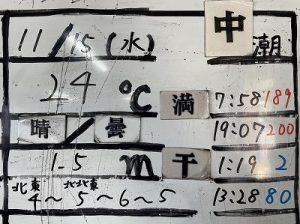 11/15(水) 中潮
24℃
満 7:58 189
晴/曇 19:07 200
1.5m 干 1:19 2
北東 北北東 13:28 80
4〜5〜6〜5